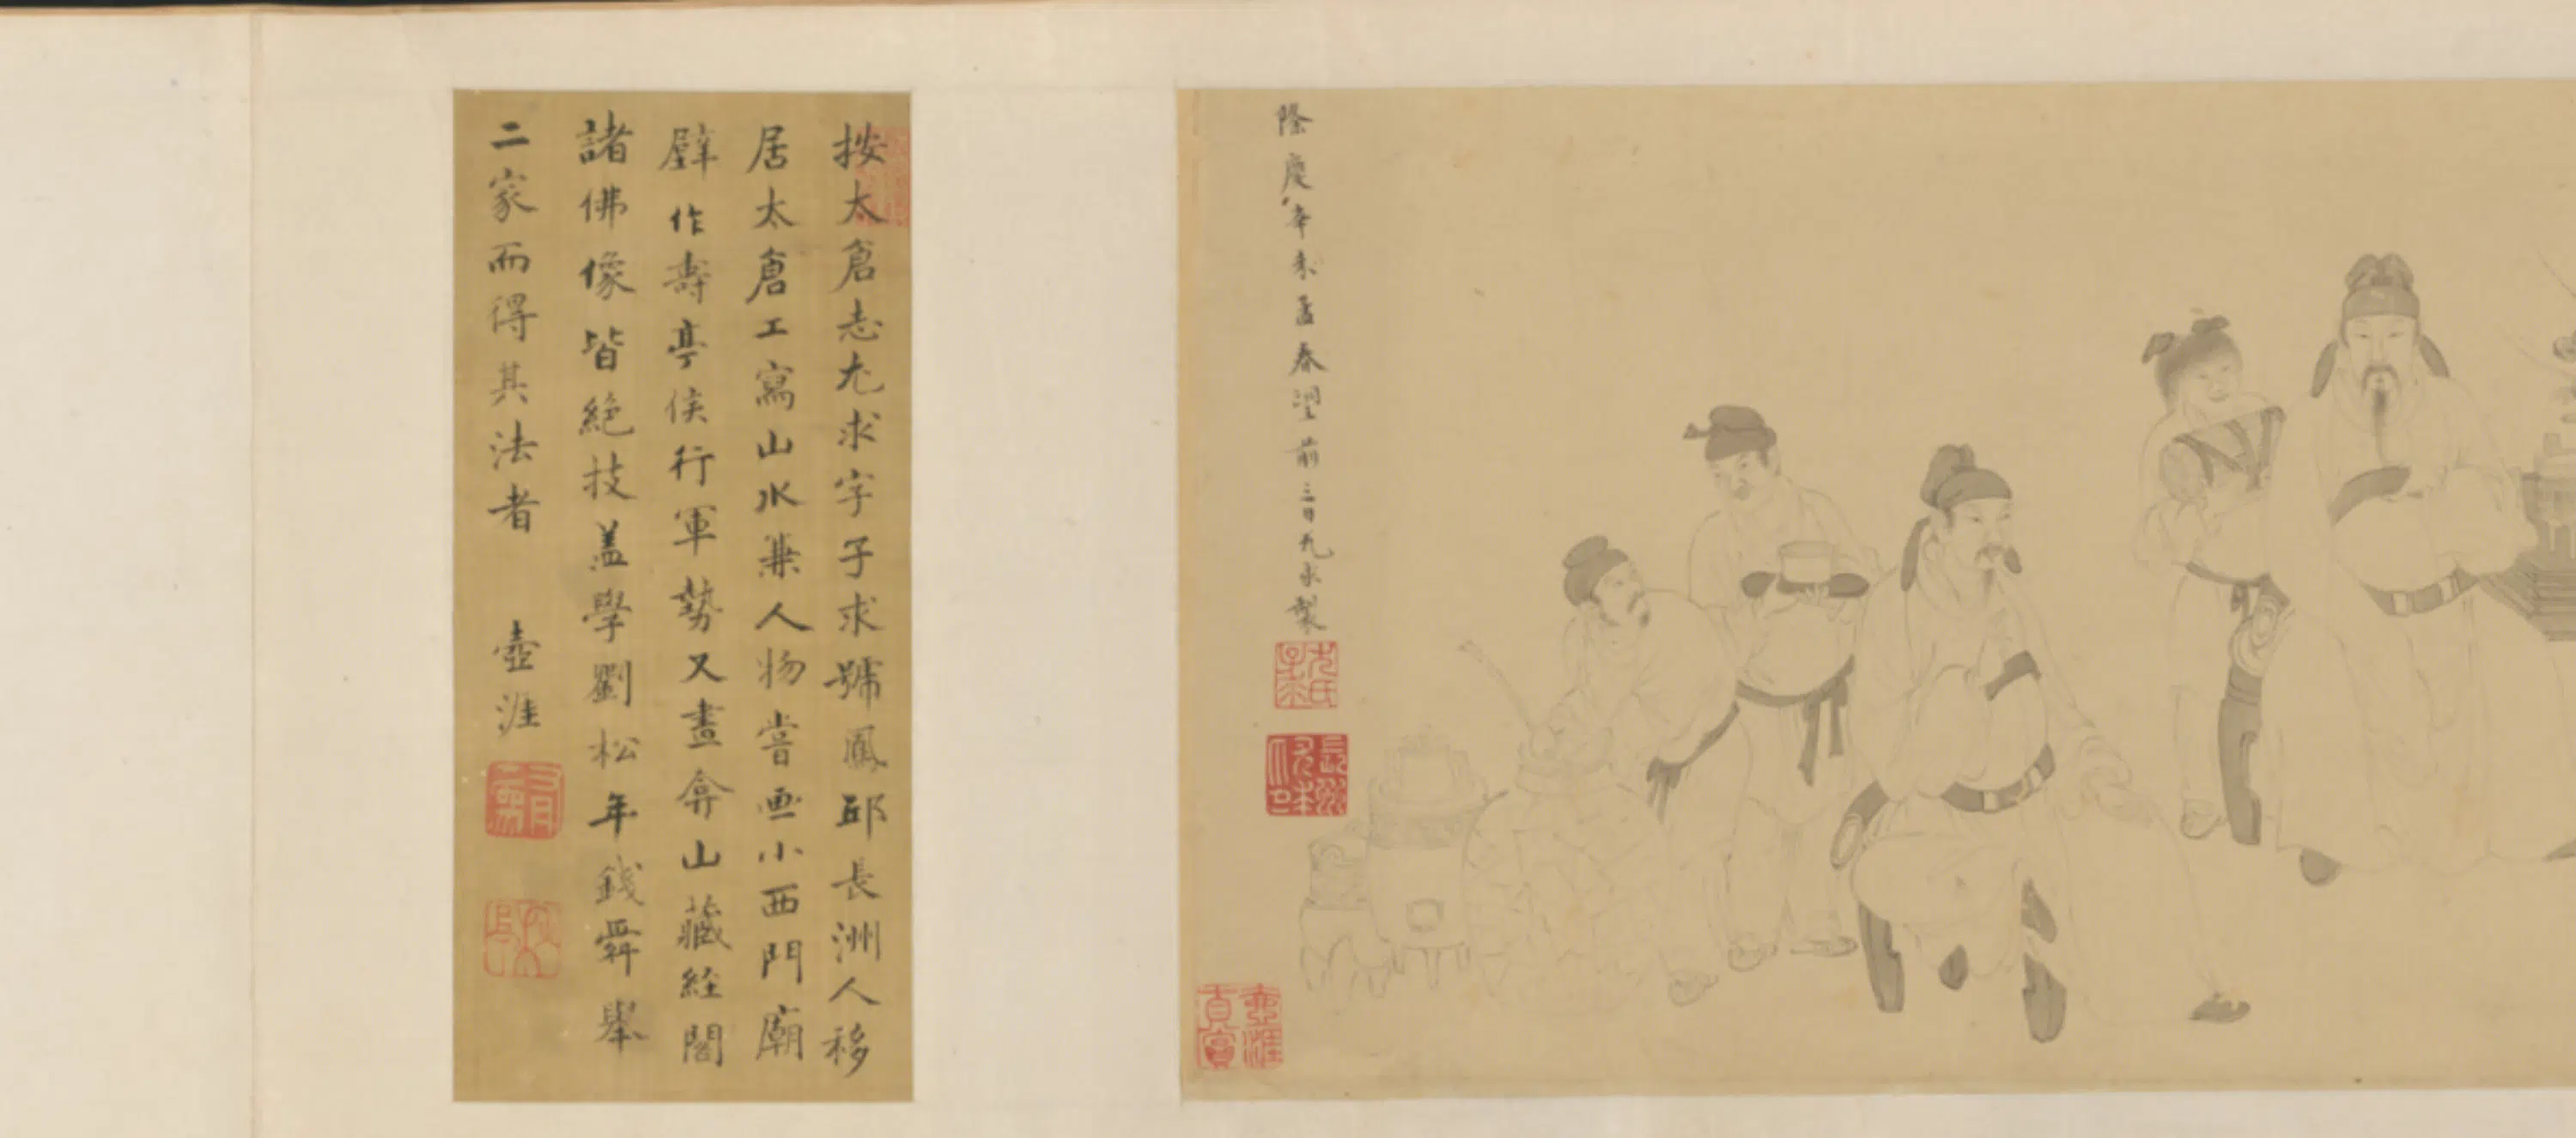 隆慶辛未孟春望前三日尤求製
尤氏子求
長洲
壺涯真賞
按太倉志尤求字子求號鳳邱長洲人移
居太倉工寫山水兼人物嘗畫小西門廟
壁作壽亭侯行軍勢又畫弇山藏經閣
諸佛像皆絕技蓋學劉松年錢舜舉
二家而得其法者 壺涯